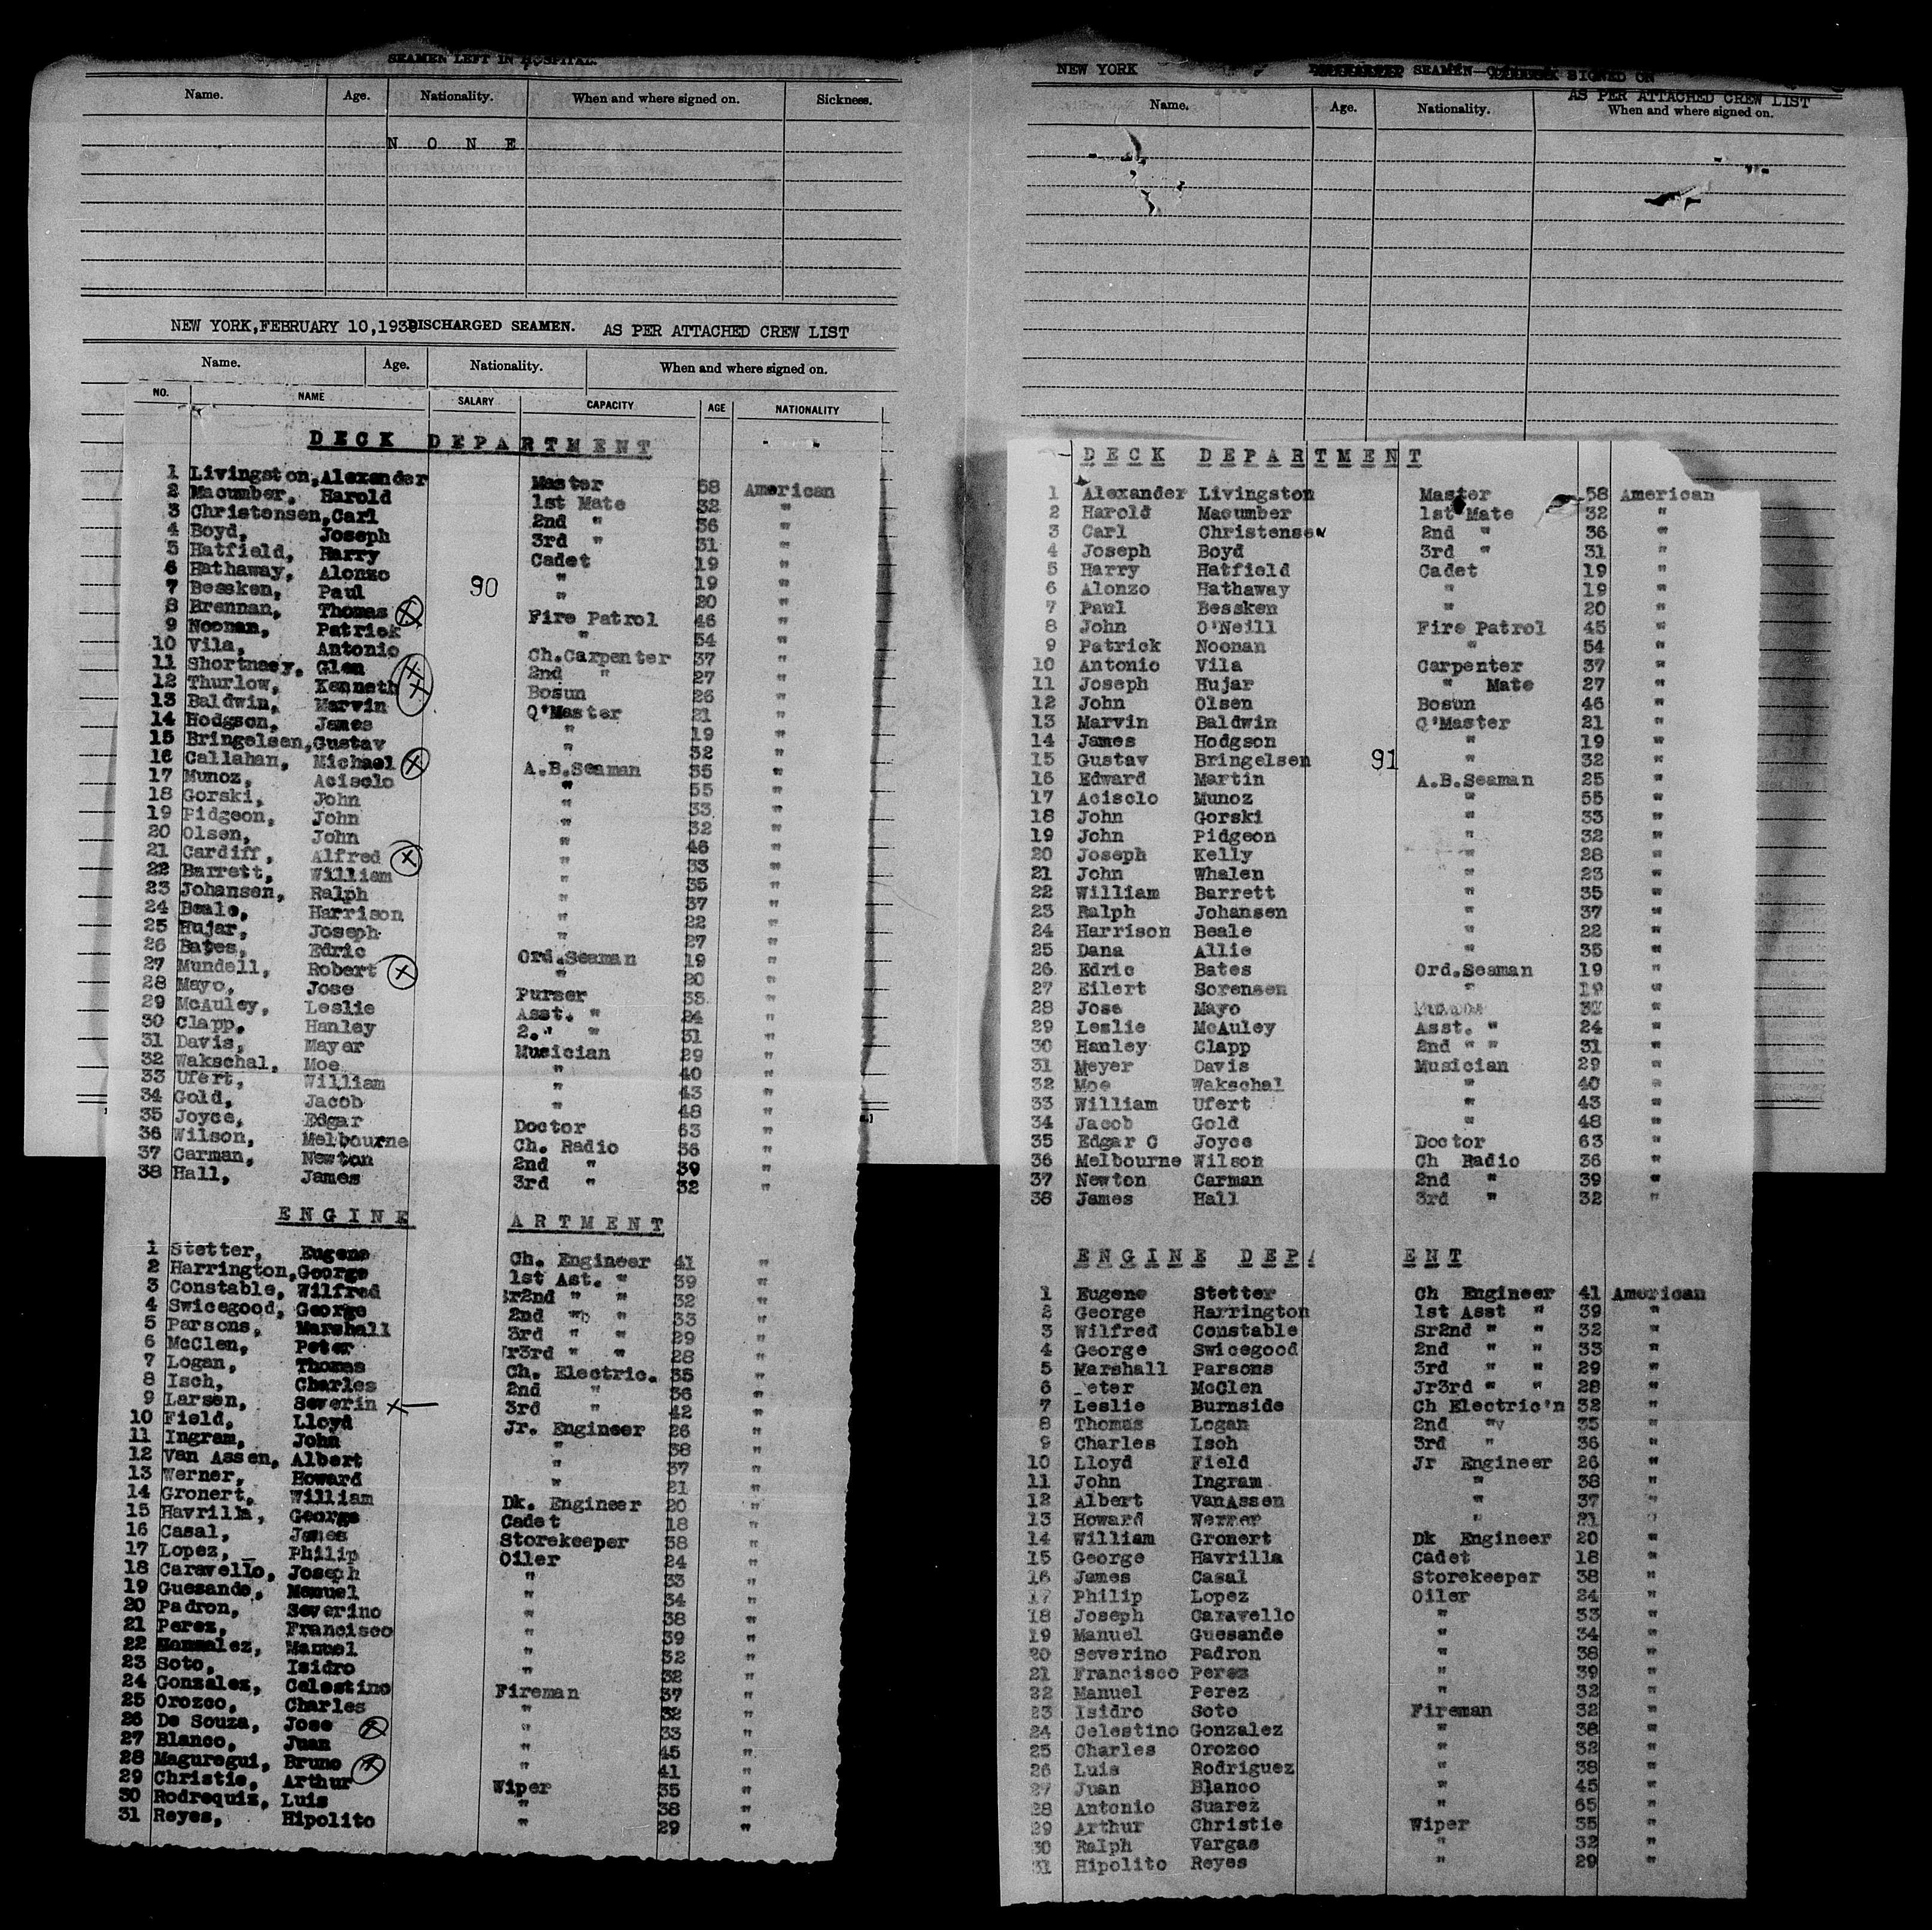 SEAMEN LEFT IN HOSPITAL.
Name. Age. Nationality. When and where signed on. Sickness.
N O N E
NEW YORK, FEBRUARY 10, 1938 DISCHARGED SEAMEN. AS PER ATTACHED CREW LIST
Name. Age. Nationality. When and where signed on.
NO. NAME SALARY CAPACITY AGE NATIONALITY
DECK DEPARTMENT
1 Livingston, Alexander Master 58 American
2 Macumber, Harold 1st Mate 32 "
3 Christensen, Carl 2nd " 36 "
4 Boyd, Joseph 3rd " 31 "
5 Hatfield, Harry Cadet 19 "
6 Hathaway, Alonzo " 19 "
7 Bessken, Paul 90 " 20 "
8 Brennan, Thomas X Fire Patrol 46 "
9 Noonan, Patrick " 54 "
10 Vila, Antonio Ch.Carpenter 37 "
11 Shortnacy, Glen X 2nd " 27 "
12 Thurlow, Kenneth X Bosun 26 "
13 Baldwin, Marvin Q'Master 21 "
14 Hodgson, James " 19 "
15 Bringelsen, Gustav " 32 "
16 Callahan, Michael X A.B.Seaman 35 "
17 Munoz, Acisclo " 55 "
18 Gorski, John " 33 "
19 Pidgeon, John " 32 "
20 Olsen, John " 46 "
21 Cardiff, Alfred X " 33 "
22 Barrett, William " 35 "
23 Johansen, Ralph " 37 "
24 Beale, Harrison " 22 "
25 Hujar, Joseph " 27 "
26 Bates, Edric Ord.Seaman 19 "
27 Mundell, Robert X " 20 "
28 Mayo, Jose Purser "
29 McAuley, Leslie Asst. " 24 "
30 Clapp, Hanley 2." " 31 "
31 Davis, Mayer Musician 29 "
32 Wakschal, Moe " 40 "
33 Ufert, William " 43 "
34 Gold, Jacob " 48 "
35 Joyce, Edgar Doctor 63 "
36 Wilson, Melbourne Ch. Radio 36 "
37 Carman, Newton 2nd " 39 "
38 Hall, James 3rd " 32 "
ENGINE ARTMENT
1 Stetter, Eugene Ch. Engineer 41 "
2 Harrington, George 1st Ast. " 39 "
3 Constable, Wilfred Sr2nd " " 32 "
4 Swicegood, George 2nd " " 33 "
5 Parsons, Marshall 3rd " " 29 "
6 McClen, Peter Jr3rd " " 28 "
7 Logan, Thomas Ch. Electric. 35 "
8 Isch, Charles 2nd " 36 "
9 Larsen, Severin X 3rd " 42 "
10 Field, Lloyd Jr. Engineer 26 "
11 Ingram, John " 38 "
12 Van Assen, Albert " 37 "
13 Werner, Howard " 21 "
14 Gronert, William Dk. Engineer 20 "
15 Havrilla, George Cadet 18 "
16 Casal, James Storekeeper 38 "
17 Lopez, Philip Oiler 24 "
18 Caravello, Joseph " 33 "
19 Guesande, Manuel " 34 "
20 Padron, Severino " 38 "
21 Perez, Francisco " 39 "
22 Manuel " 32 "
23 Soto, Isidro " 32 "
24 Gonzalez, Celestino Fireman 37 "
25 Orozco, Charles " 32 "
26 De Souza, Jose X " 33 "
27 Blanco, Juan " 45 "
28 Maguregui, Bruno X " 41 "
29 Christie, Arthur Wiper 35 "
30 Rodrequiz, Luis " 38 "
31 Reyes, Hipolito " 29 "
NEW YORK SEAMEN— SIGNED ON
AS PER ATTACHED CREW LIST
Name. Age. Nationality. When and where signed on.
DECK DEPARTMENT
1 Alexander Livingston Master 58 American
2 Harold Macumber 1st Mate 32 "
3 Carl Christensen 2nd " 36 "
4 Joseph Boyd 3rd " 31 "
5 Harry Hatfield Cadet 19 "
6 Alonzo Hathaway " 19 "
7 Paul Bessken " 20 "
8 John O'Neill Fire Patrol 45 "
9 Patrick Noonan " 54 "
10 Antonio Vila Carpenter 37 "
11 Joseph Hujar " Mate 27 "
12 John Olsen Bosun 46 "
13 Marvin Baldwin Q'Master 21 "
14 James Hodgson " 19 "
15 Gustav Bringelsen 91 " 32 "
16 Edward Martin A.B.Seaman 25 "
17 Acisclo Munoz " 55 "
18 John Gorski " 33 "
19 John Pidgeon " 32 "
20 Joseph Kelly " 28 "
21 John Whalen " 23 "
22 William Barrett " 35 "
23 Ralph Johansen " 37 "
24 Harrison Beale " 22 "
25 Dana Allie " 35 "
26 Edric Bates Ord.Seaman 19 "
27 Eilert Sorensen " 19 "
28 Jose Mayo "
29 Leslie McAuley Asst. " 24 "
30 Hanley Clapp 2nd " " 31 "
31 Meyer Davis Musician 29 "
32 Moe Wakschal " 40 "
33 William Ufert " 43 "
34 Jacob Gold " 48 "
35 Edgar C Joyce Doctor 63 "
36 Melbourne Wilson Ch Radio 36 "
37 Newton Carman 2nd " 39 "
38 James Hall 3rd " 32 "
ENGINE DEPA ENT
1 Eugene Stetter Ch Engineer 41 American
2 George Harrington 1st Asst " 39 "
3 Wilfred Constable Sr2nd " " 32 "
4 George Swicegood 2nd " " 33 "
5 Marshall Parsons 3rd " " 29 "
6 eter McClen Jr3rd " " 28 "
7 Leslie Burnside Ch Electric'n 32 "
8 Thomas Logan 2nd " 35 "
9 Charles Isch 3rd " 36 "
10 Lloyd Field Jr Engineer 26 "
11 John Ingram " 38 "
12 Albert VanAssen " 37 "
13 Howard Werner " 21 "
14 William Gronert Dk Engineer 20 "
15 George Havrilla Cadet 18 "
16 James Casal Storekeeper 38 "
17 Philip Lopez Oiler 24 "
18 Joseph Caravello " 33 "
19 Manuel Guesande " 34 "
20 Severino Padron " 38 "
21 Francisco Perez " 39 "
22 Manuel Perez " 32 "
23 Isidro Soto Fireman 32 "
24 Celestino Gonzalez " 38 "
25 Charles Orozco " 32 "
26 Luis Rodriguez " 38 "
27 Juan Blanco " 45 "
28 Antonio Suarez " 65 "
29 Arthur Christie Wiper 35 "
30 Ralph Vargas " 32 "
31 Hipolito Reyes " 29 "